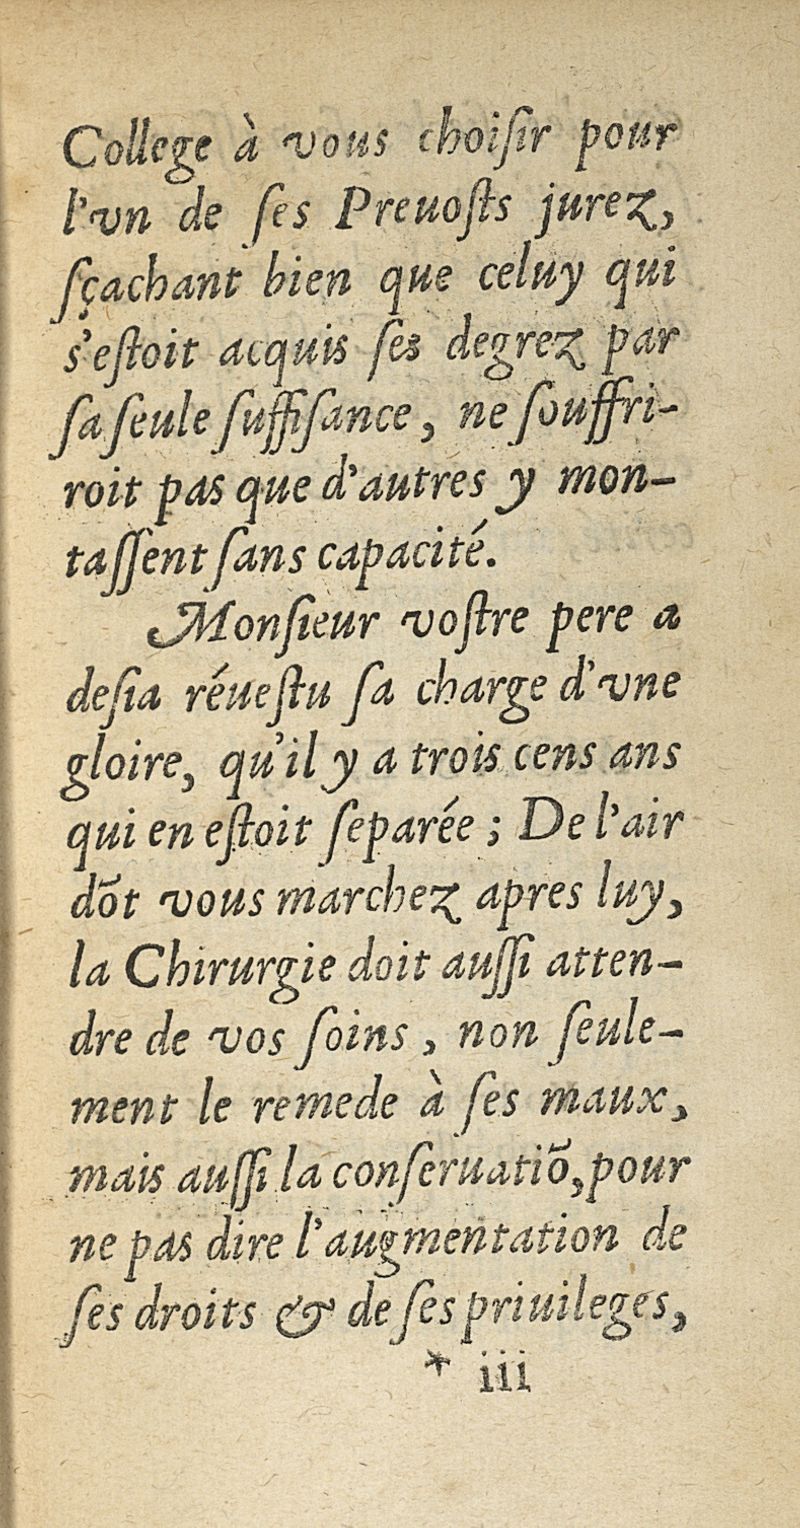 College à vous choiſir pour
l'vn de ſes Preuoſts jurez,
ſçachant bien que celuy qui
s'eſtoit acquis ſes degrez par
ſa ſeule ſuffiſance, ne ſouffri-
roit pas que d'autres y mon-
taſſent ſans capacité.
Monſieur voſtre pere a
deſia réueſtu ſa charge d'vne
gloire, qu'il y a trois cens ans
qui en eſtoit ſeparée ; De l'air
dõt vous marchez apres luy,
la Chirurgie doit auſſi atten-
dre de vos ſoins, non ſeule-
ment le remede à ſes maux,
mais auſſi la conſeruatiõ, pour
ne pas dire l'augmentation de
ſes droits & de ſes priuileges,
* iii